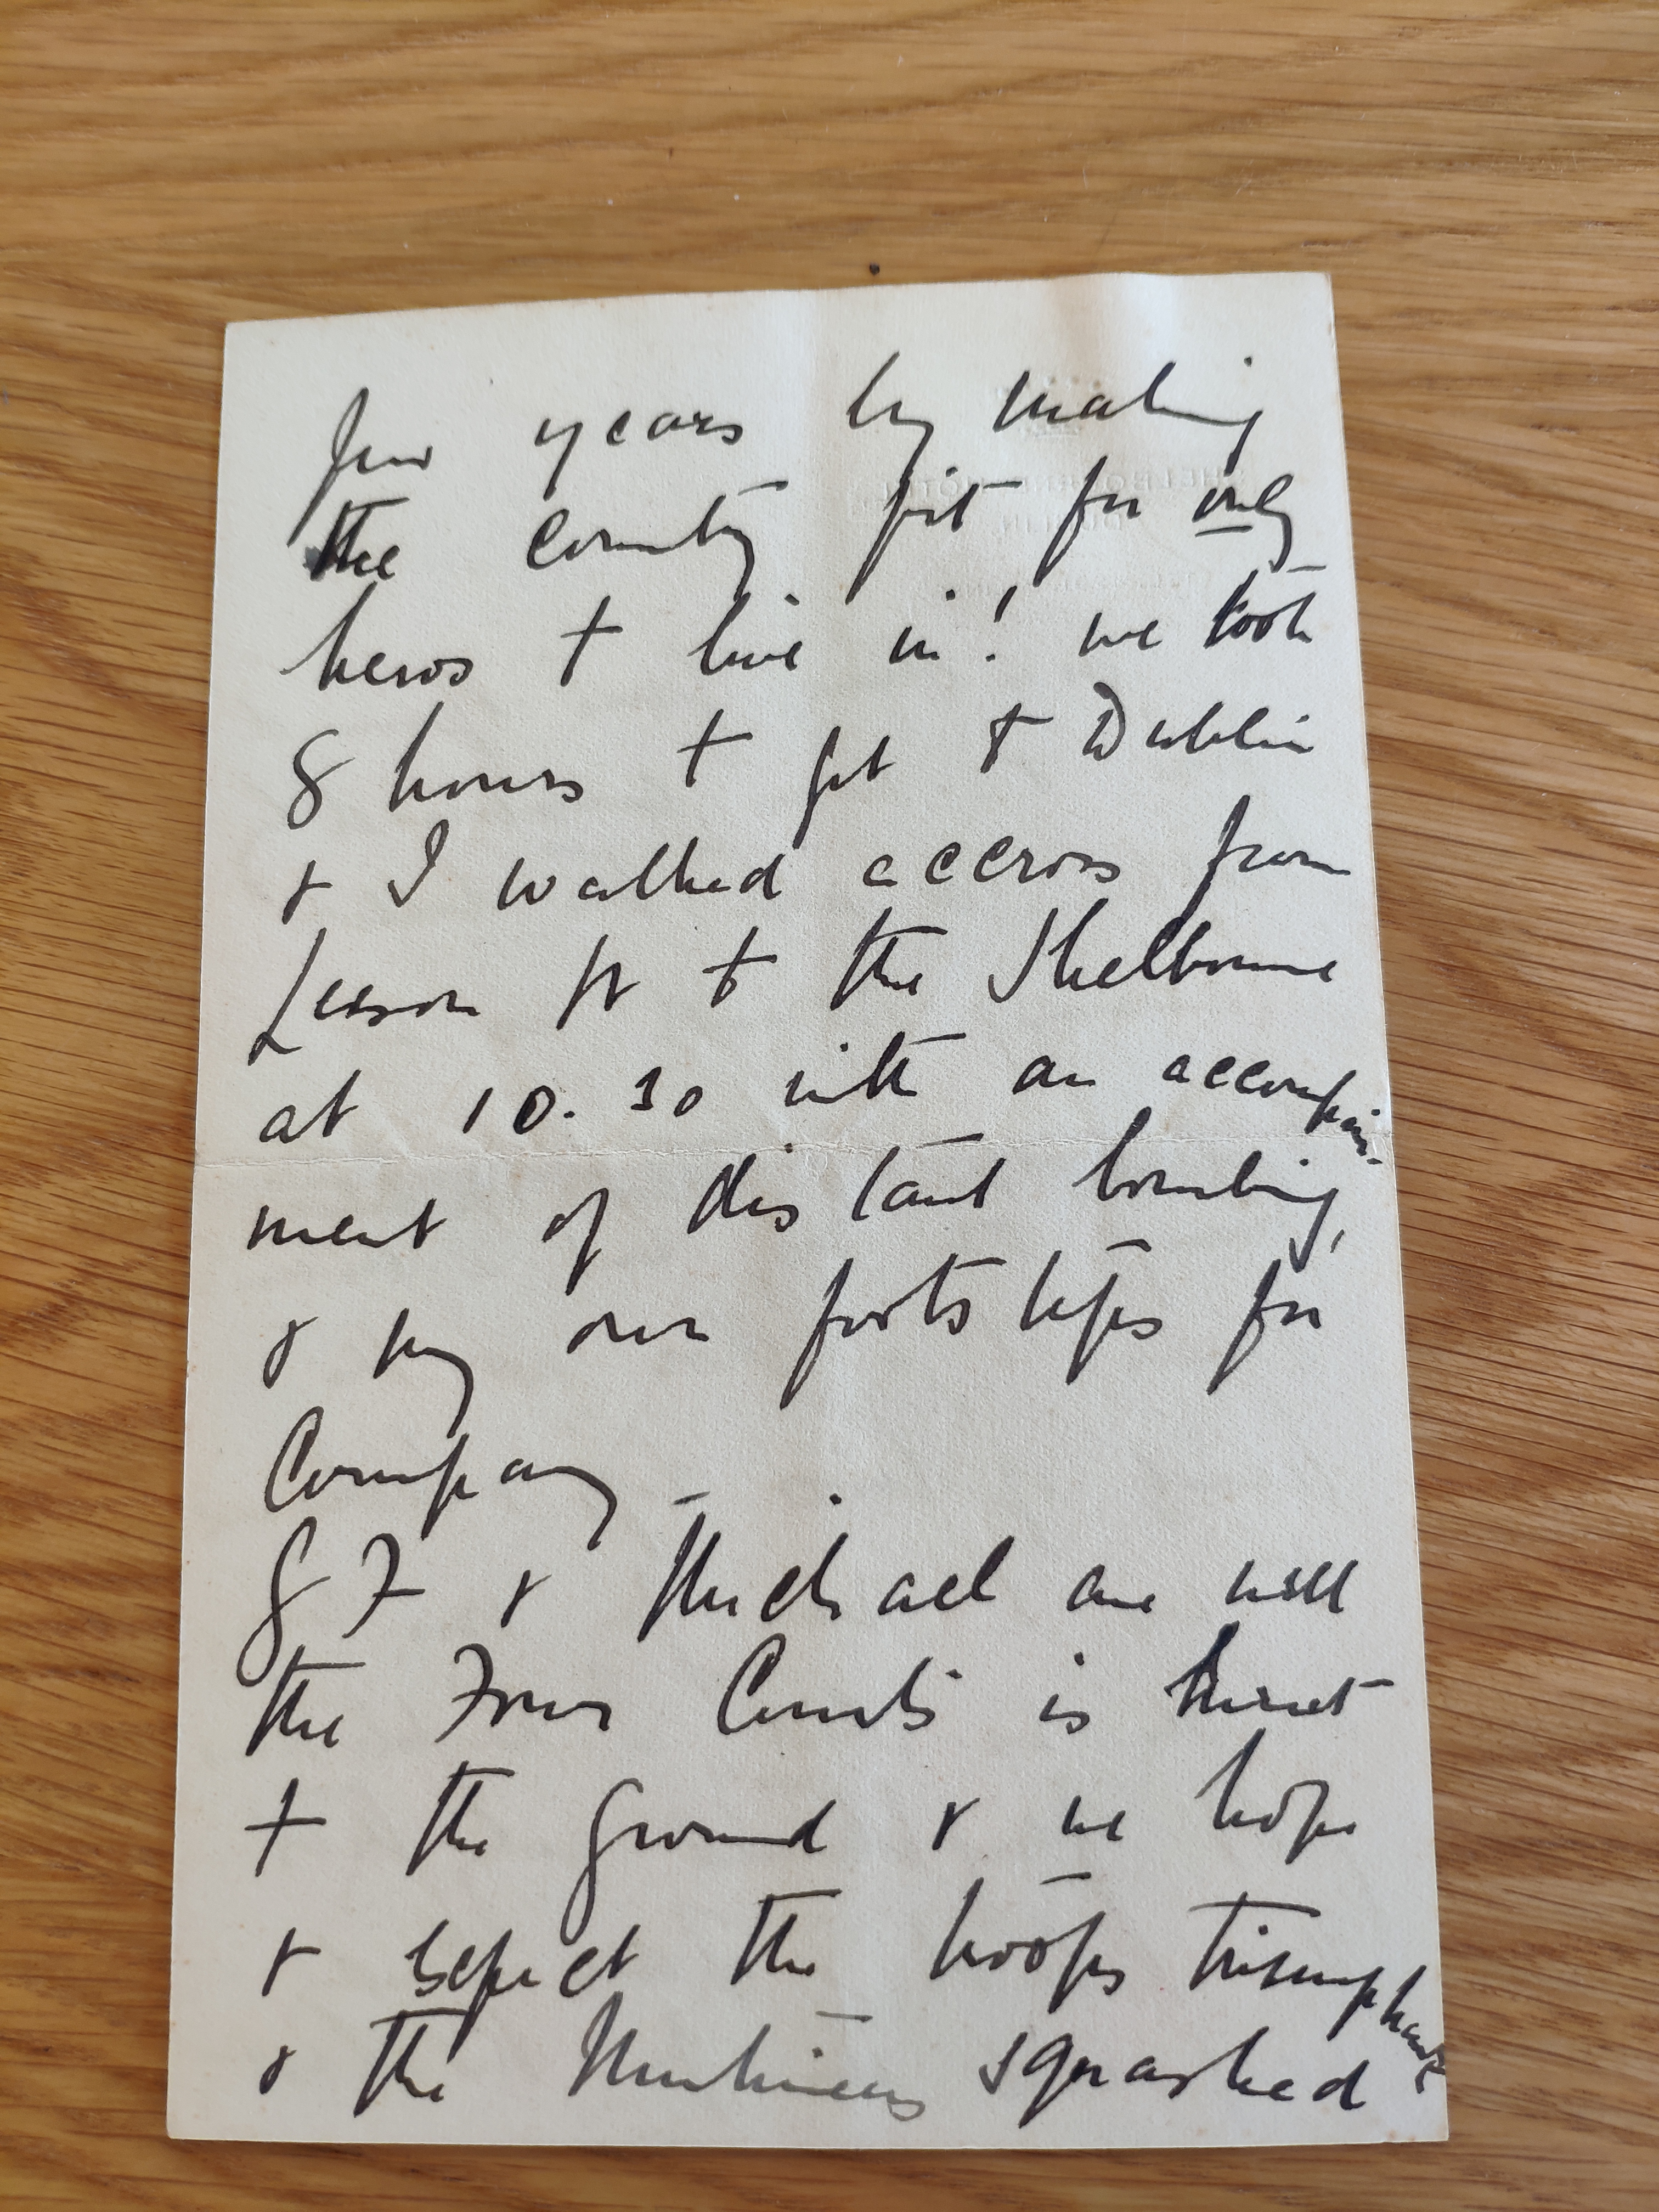 few years by making
the country fit for only
heros to live in! we took
8 hours to get to Dublin
& I walked accross from
Leeson St to the Shelbourne
at 10.30 with an accompani-
ment of distant bombing,
& my own footsteps for
Company –
G F & Michael are well
the Four Courts is burnt
to the ground & we hope
& expect the troops triumphant
& the Mutineers squashed